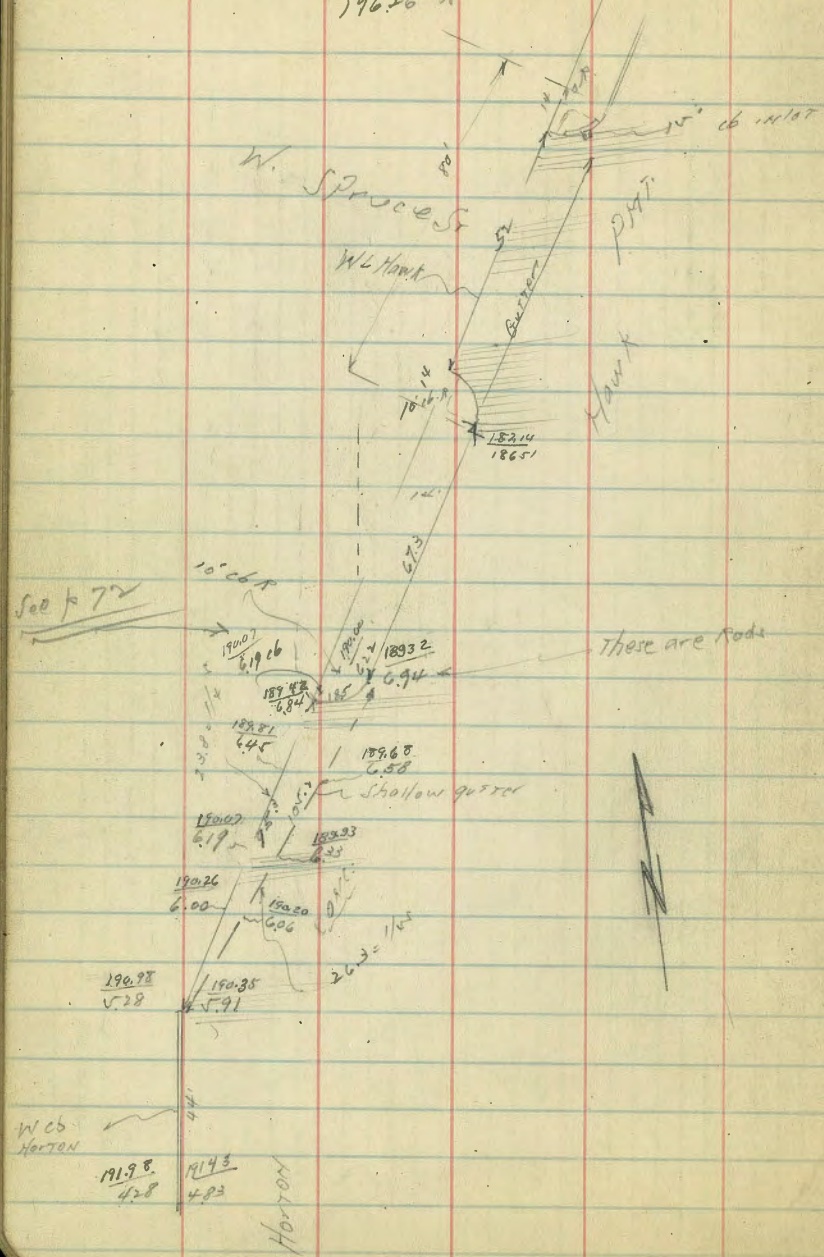 196.26
80'
14
15'
cb inlet
W. Spruce St
52
PMT.
WL Hawk
Gutter
Hawk
14
10' cb. R
182.14
186 51
14'
67.3
10' cb R
See p 72
190.07
6.19 cb
190.00
6.26
189 32
6.94
These are Rods
189 42
6.84
185
189.81
6.45
189.68
6.58
Shallow gutter
105.7
190.07
6.19
189.93
6.33
190.26
6.00
190.20
6.06
Conc.
26.3 = 1/25
190.98
5.28
190.35
5.91
44'
W cb
Horton
191.98
4.28
191 43
4.83
Horton